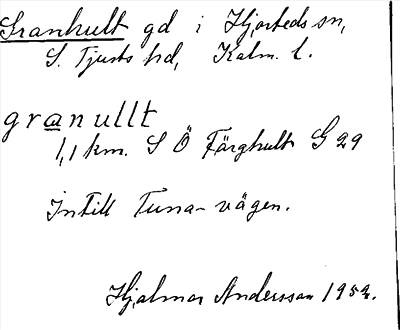 Granhult gd i Hjorteds sn,
S. Tjusts hd, Kalm. l.
granullt
1,1 km. S Ö Färghult G 29
Intill Tuna-vägen.
Hjalmar Andersson 1959.